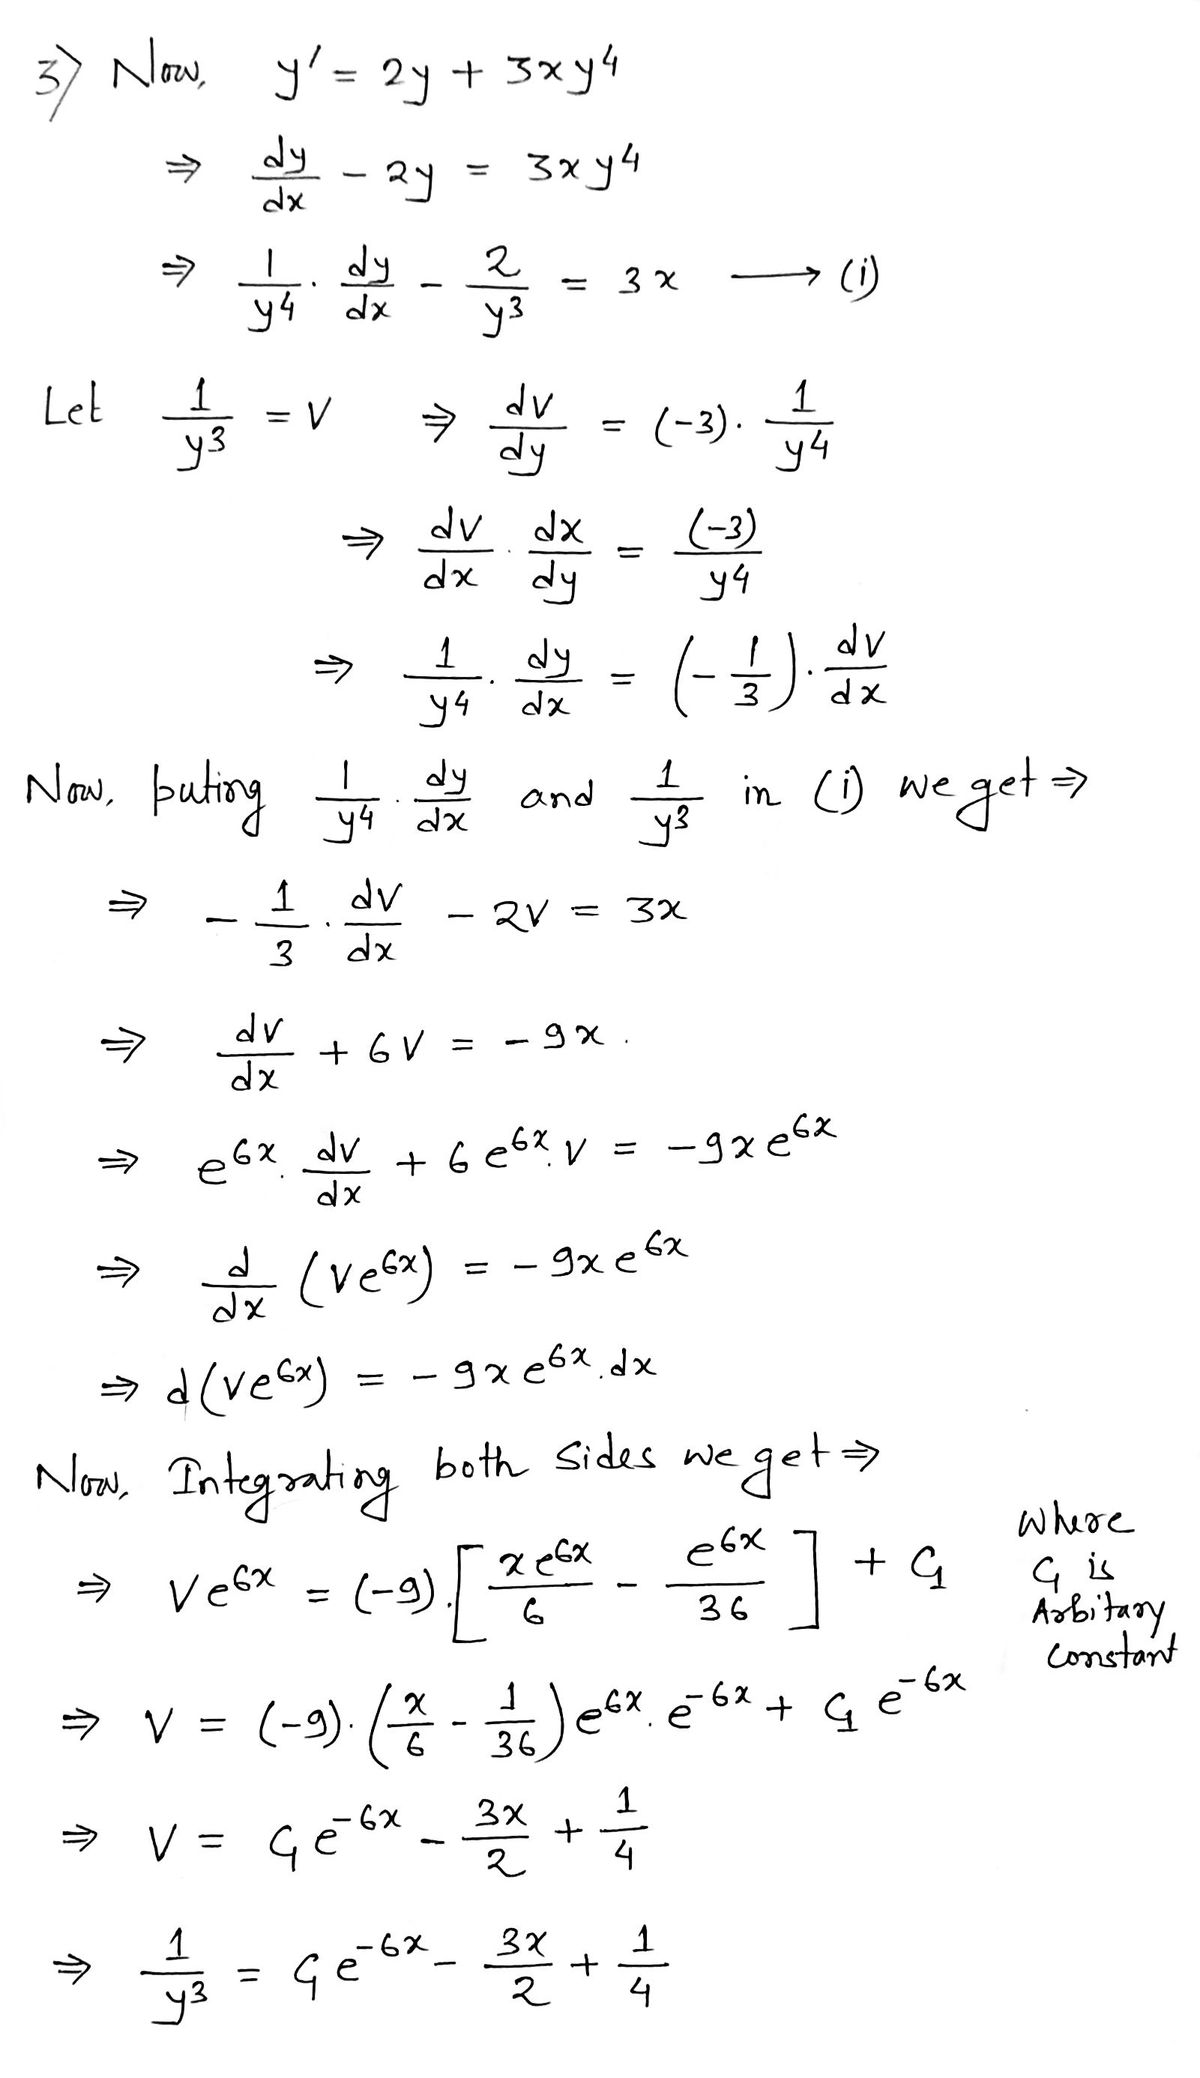 3) Now, y' = 2y + 3xy⁴
⇒ dy/dx - 2y = 3xy⁴
⇒ 1/y⁴ · dy/dx - 2/y³ = 3x ⟶ (i)
Let 1/y³ = V ⇒ dv/dy = (-3) · 1/y⁴
⇒ dv/dx · dx/dy = (-3)/y⁴
⇒ 1/y⁴ · dy/dx = (-1/3) · dv/dx
Now, puting 1/y⁴ · dy/dx and 1/y³ in (i) we get ⇒
⇒ - 1/3 · dv/dx - 2V = 3x
⇒ dv/dx + 6V = -9x.
⇒ e⁶ˣ · dv/dx + 6e⁶ˣ · V = -9xe⁶ˣ
⇒ d/dx (Ve⁶ˣ) = -9xe⁶ˣ
⇒ d(Ve⁶ˣ) = -9xe⁶ˣ · dx
Now, Integrating both Sides we get ⇒
⇒ Ve⁶ˣ = (-9) · [xe⁶ˣ/6 - e⁶ˣ/36] + C₁
where
C₁ is
Arbitary
Constant
⇒ V = (-9) · (x/6 - 1/36) e⁶ˣ · e⁻⁶ˣ + C₁e⁻⁶ˣ
⇒ V = C₁e⁻⁶ˣ - 3x/2 + 1/4
⇒ 1/y³ = C₁e⁻⁶ˣ - 3x/2 + 1/4